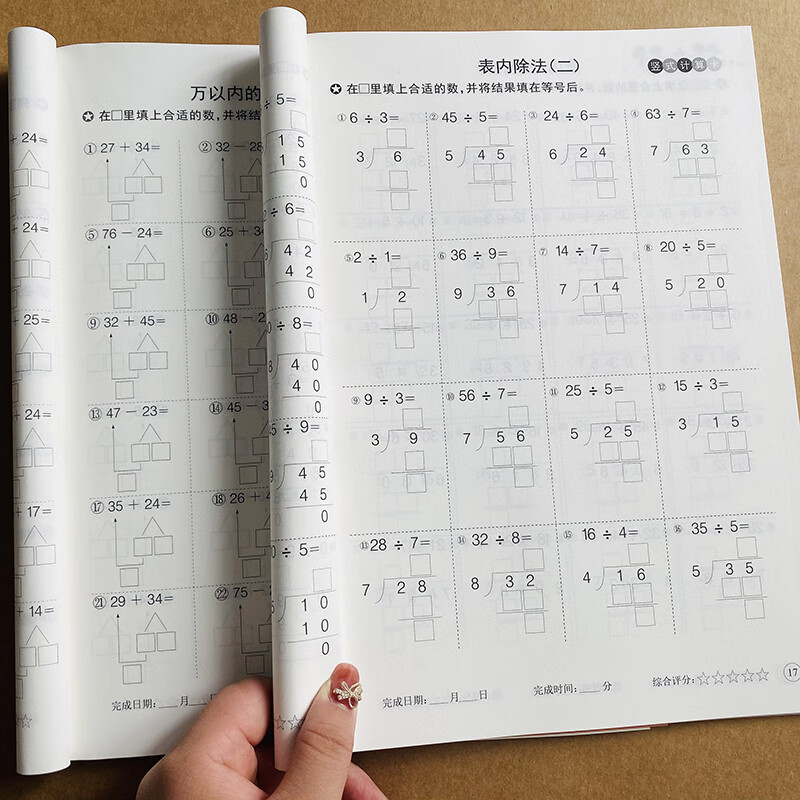 + 24=
+ 24=
+ 25=
+ 24=
+ 17=
+ 14=
万以内的
✪ 在□里填上合适的数,并将结
① 27 + 34= ② 32 − 28
⑤ 76 − 24= ⑥ 25 + 34
⑨ 32 + 45= ⑩ 48 − 2
⑬ 47 − 23= ⑭ 45 − 3
⑰ 35 + 24= ⑱ 26 + 4
㉑ 29 + 34= ㉒ 75 − 2
完成日期:___月___日
÷ 5=
1 5
1 5
0
÷ 6=
4 2
4 2
0
÷ 8=
8 4 0
4 0
0
5 ÷ 9=
9 4 5
4 5
0
0 ÷ 5=
5 1 0
1 0
0
表内除法(二)
竖式计算卡
✪ 在□里填上合适的数,并将结果填在等号后。
① 6 ÷ 3= ② 45 ÷ 5= ③ 24 ÷ 6= ④ 63 ÷ 7=
3 6 5 4 5 6 2 4 7 6 3
⑤ 2 ÷ 1= ⑥ 36 ÷ 9= ⑦ 14 ÷ 7= ⑧ 20 ÷ 5=
1 2 9 3 6 7 1 4 5 2 0
⑨ 9 ÷ 3= ⑩ 56 ÷ 7= ⑪ 25 ÷ 5= ⑫ 15 ÷ 3=
3 9 7 5 6 5 2 5 3 1 5
⑬ 28 ÷ 7= ⑭ 32 ÷ 8= ⑮ 16 ÷ 4= ⑯ 35 ÷ 5=
7 2 8 8 3 2 4 1 6 5 3 5
完成日期:___月___日 完成时间:___分 综合评分:☆☆☆☆☆
17